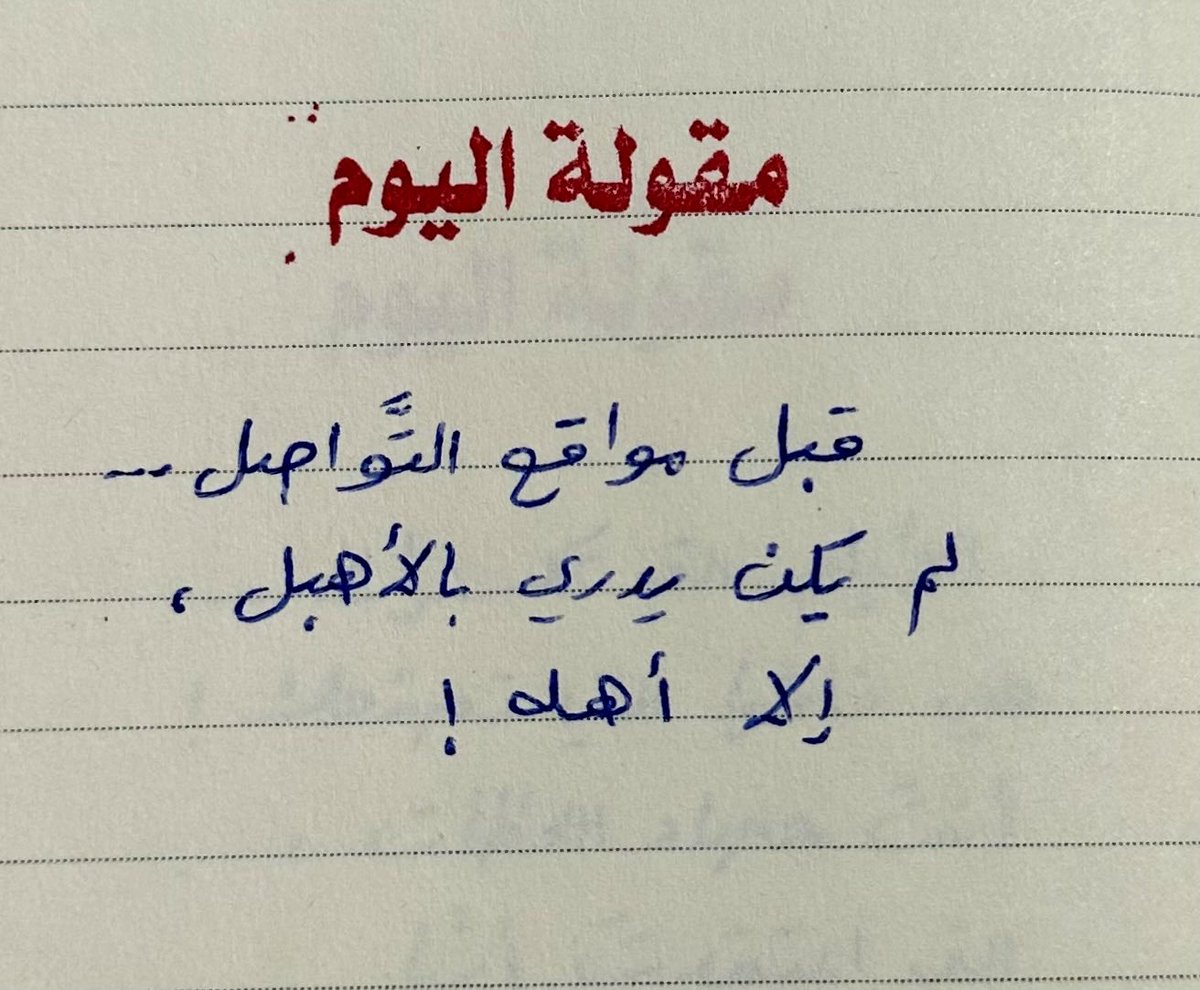 مقولة اليوم
قبل مواقع التَّواصل...
لم يكن يدري بالأهبل،
إلا أهله !